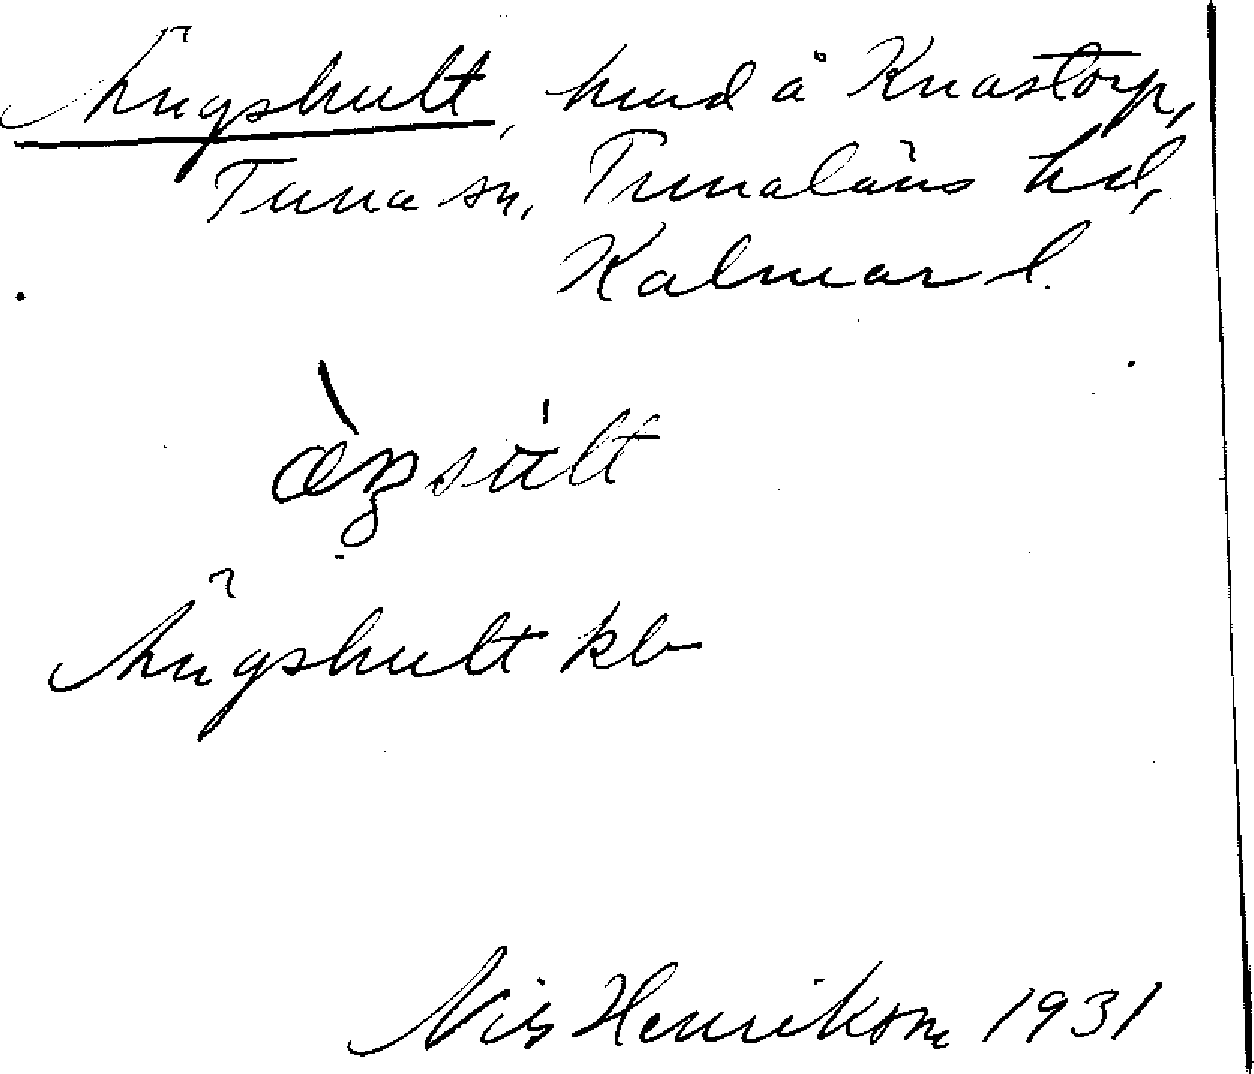 Ängshult, hmd å Knastorp,
Tuna sn, Tunaläns hd,
Kalmar l.
Ängshult kb
Nils Henrikson 1931